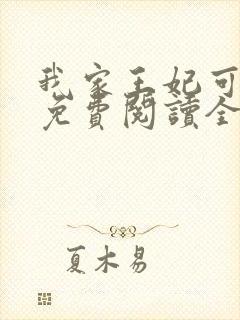 我家王妃可
免費閱讀全
夏木易